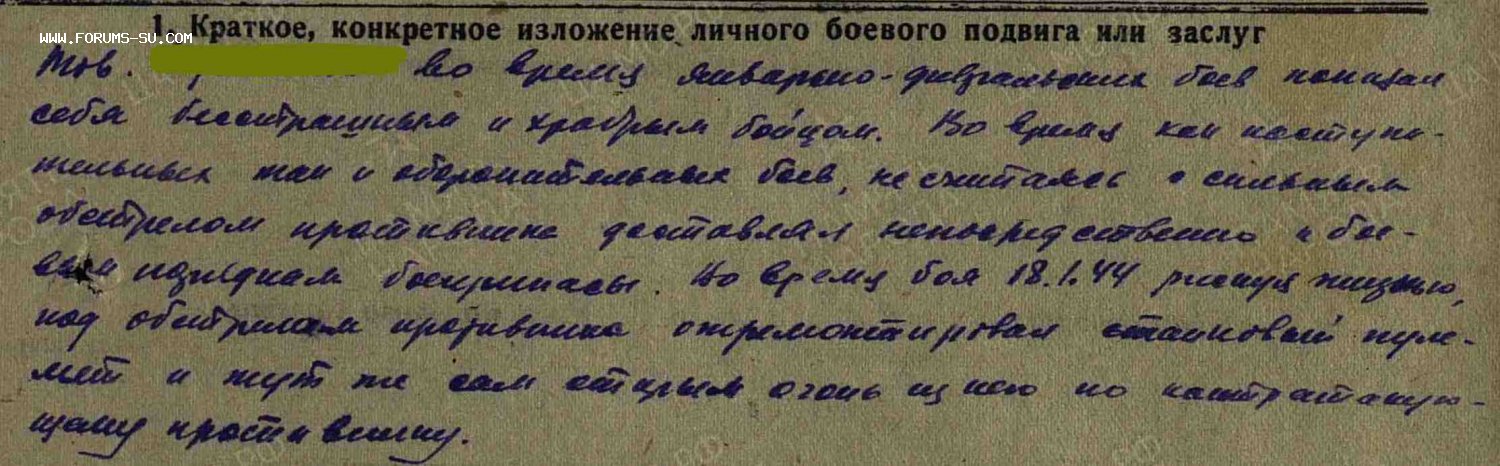 1. Краткое, конкретное изложение личного боевого подвига или заслуг
WWW.FORUMS-SU.COM
Тов. во время январско-февральских боев показал
себя бесстрашным и храбрым бойцом. Во время как наступа-
тельных так и оборонительных боев, не считаясь с сильным
обстрелом противника доставлял непосредственно к бое-
вым позициям боеприпасы. Во время боя 18.1.44 рискуя жизнью,
под обстрелом противника отремонтировал станковый пуле-
мет и тут же сам открыл огонь из него по контратакую-
щему противнику.